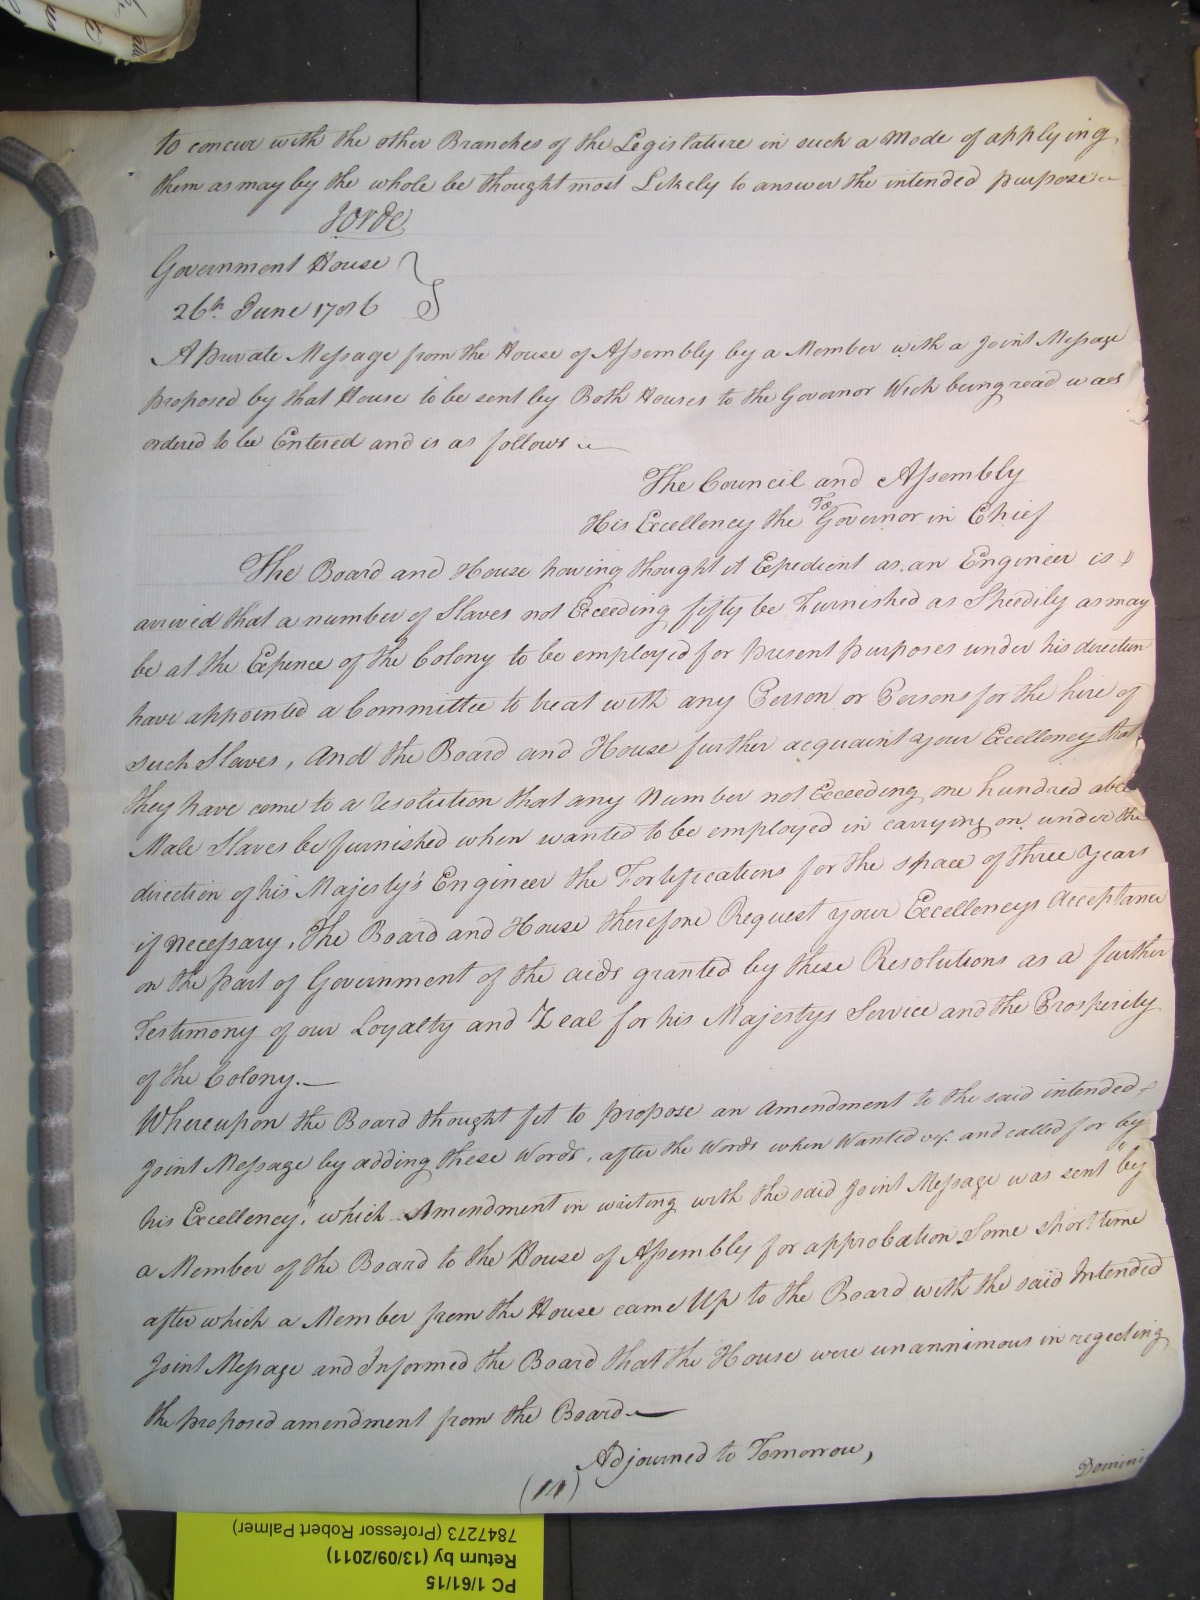 to concur with the other Branches of the Legislature in such a Mode of applying
them as may by the whole be thought most Likely to answer the intended purpose
Government House
26th June 1786
A Private Message from the House of Assembly by a Member with a Joint Message
proposed by that House to be sent by Both Houses to the Governor Wich being read was
ordered to be Entered and is as follows
The Council and Assembly
To
His Excellency the Governor in Chief
The Board and House having thought it Expedient as an Engineer is
arrived that a number of Slaves not Exceeding fifty be Furnished as Speedily as may
be at the Expence of the Colony to be employed for present purposes under his direction
have appointed a Committee to treat with any Person or Persons for the hire of
such Slaves, And the Board and House further acquaint your Excellency that
they have come to a resolution that any Number not Exceeding one hundred able
Male Slaves be furnished when wanted to be employed in carrying on under the
direction of his Majesty's Engineer the Fortifications for the space of three Years
if necessary, The Board and House therefore Request your Excellencys Acceptance
on the part of Government of the aids granted by these Resolutions as a further
Testimony of our Loyalty and Zeal for his Majestys Service and the Prosperity
of the Colony.—
Whereupon the Board thought fit to propose an Amendment to the said intended
Joint Message by adding these Words, after the Words when Wanted vizt. and called for by
his Excellency", which Amendment in writing with the said Joint Message was sent by
a Member of the Board to the House of Assembly for approbation Some short time
after which a Member from the House came Up to the Board with the said Intended
Joint Message and Informed the Board that the House were unannimous in regecting
the proposed amendment from the Board—
Adjourned to Tomorrow,
Domini
PC 1/61/15
Return by (13/09/2011)
7847273 (Professor Robert Palmer)